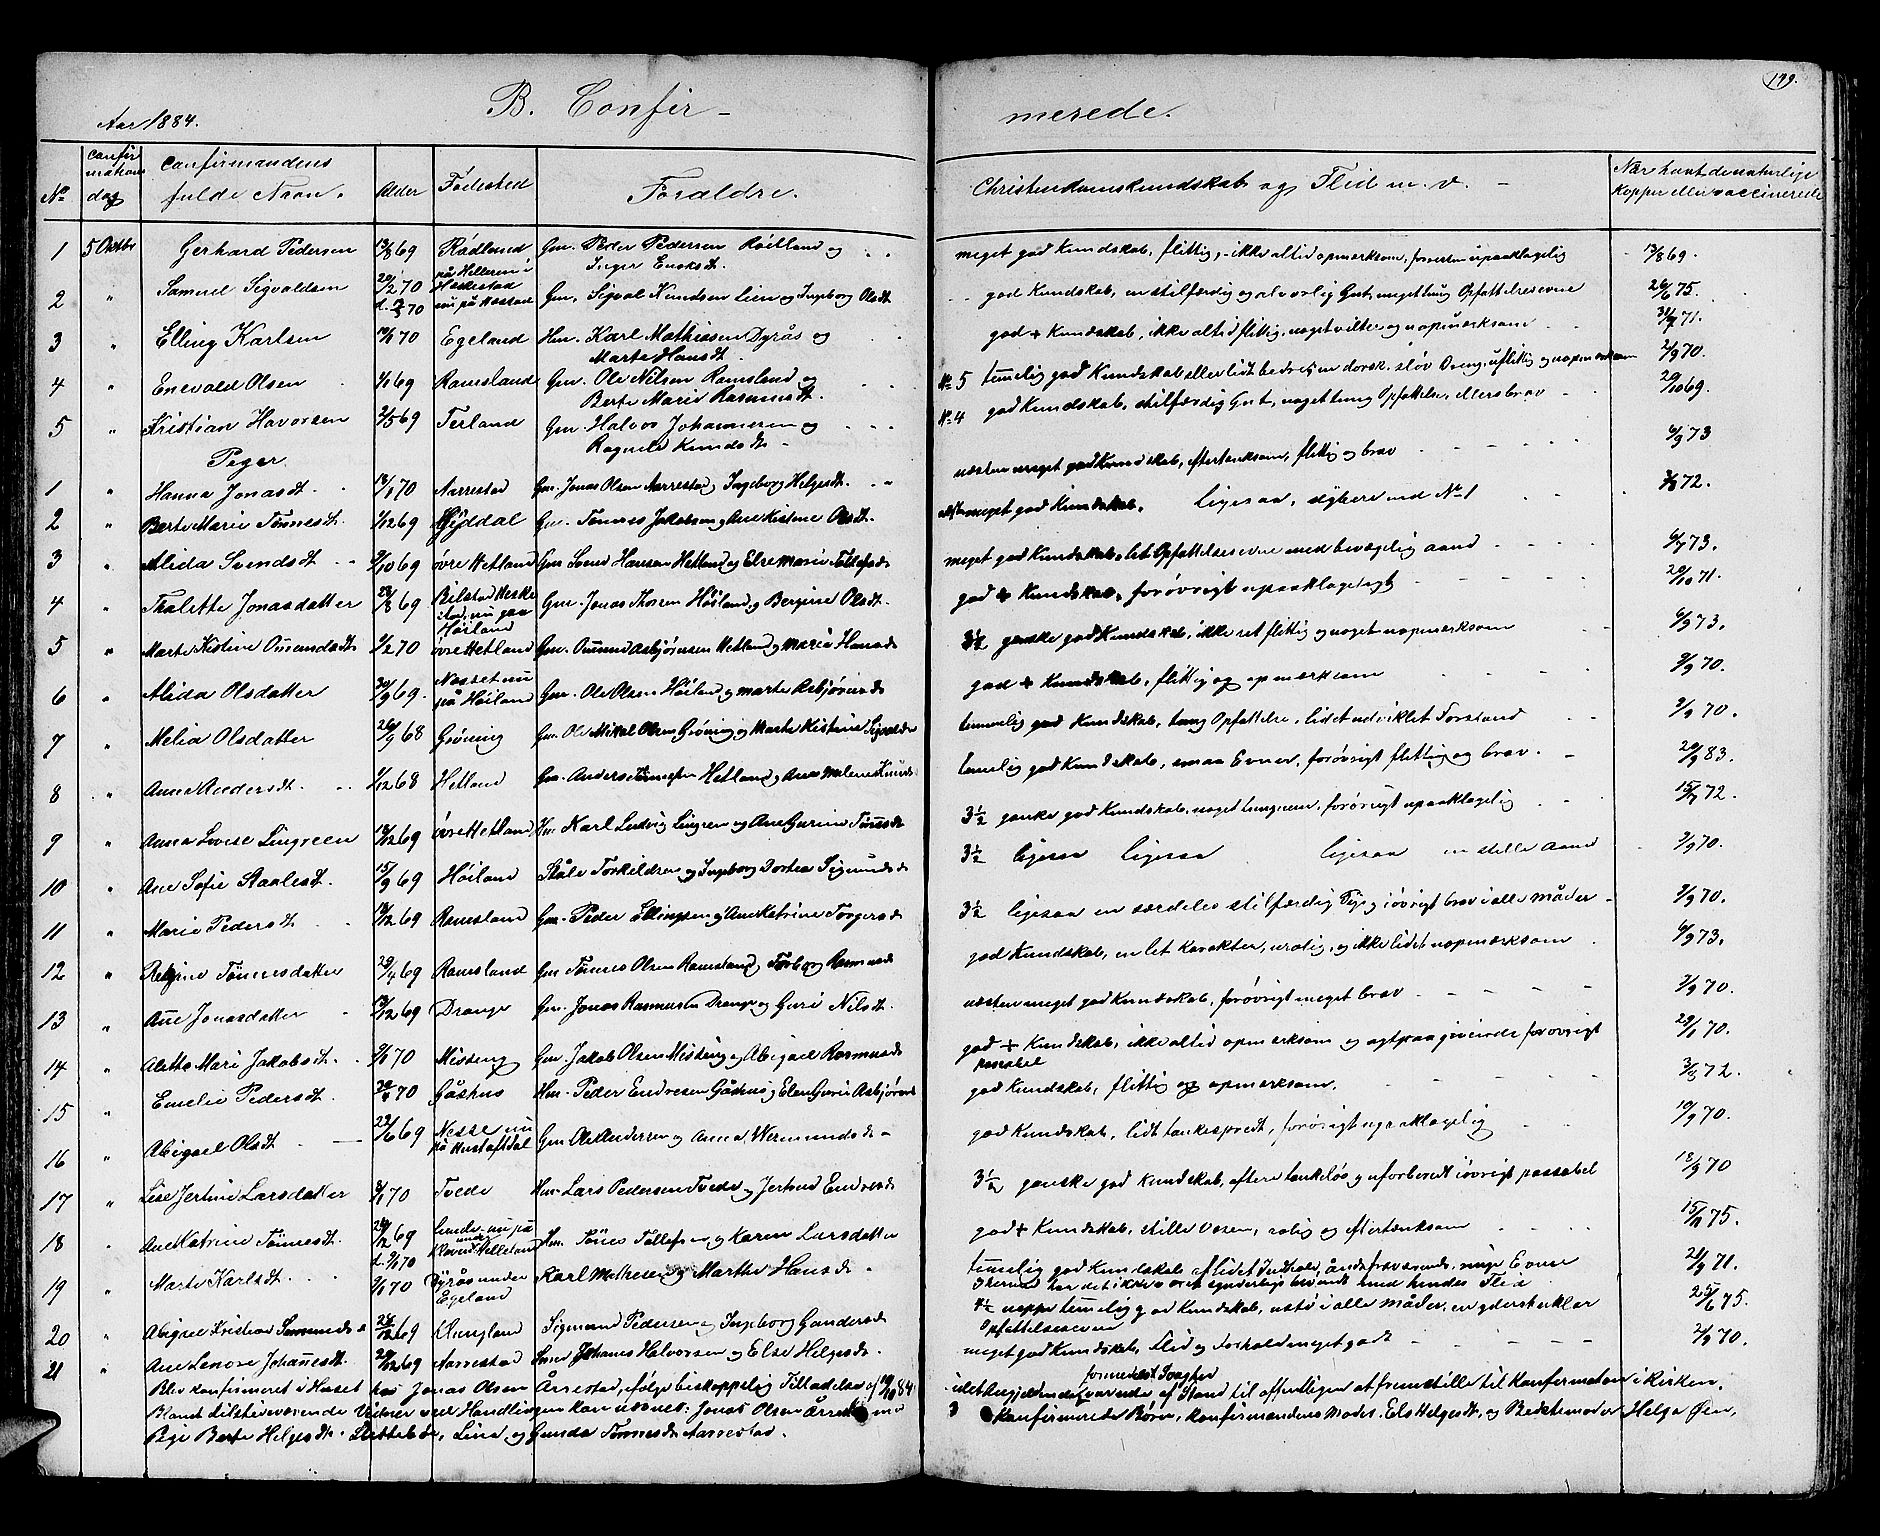 199.
Aar 1884.
B. Confir-
merede.
No
Confir
mations
dag
Confirmandens
fulde Navn.
Alder
Fødested
Forældre.
Christendomskundskab og Flid m. v.
Naar havt de naturlige
Kopper eller vaccinerede
1 5 Oktbr Gerhard Pedersen 13/8 69 Rødland Gm. Peder Pedersen Röitland og
Inger Eriksdt.
meget god Kundskab, flittig, ikke altid opmærksom, forresten upaaklagelig 13/8 69.
2 " Samuel Sigvaldsen 20/2 70 på Helleren i
Heskestad
nu på Hæstad Gm. Sigval Knudsen Lien og Ingeborg Olsdt
god Kundskab, en stilfærdig og alvorlig Gut, noget tung Opfattelsesevne 26/6 75.
3 " Elling Karlsen 70 Egeland Hm. Karl Mathiasen Dyrås og
Marte Hansdt.
god + Kundskab, ikke altid flittig, noget vilter og uopmærksom 71.
4 " Enevald Olsen 69 Ramsland Gm. Ole Nilsen Ramsland og
Berte Marie Rasmusdt.
No 5 temmelig god Kundskab eller lidt bedre, en dorsk, sløv Dreng, uflittig og uopmærksom 2/9 70.
5 " Kristian Havorsen 2/5 69 Terland Gm. Halvor Johannesen og
Ragnele Knudsdt.
No 4 god Kundskab, stilfærdig Gut, noget tung Opfattelse, ellers brav 20/10 69.
Piger
1 " Hanna Jonasdt. 13/1 70 Aarrestad Gm. Jonas Olsen Aarrestad og Ingeborg Helgesdt.
næsten meget god Kundskab, eftertænksom, flittig og brav 6/9 73
2 " Berte Marie Tønnesdt. 1/12 69 Gyddal Gm. Tønnes Jakobsen og Ane Kistine Olsdt.
meget god Kundskab. Ligesaa, dybere end No 1 72.
3 " Alida Svendsdt. 9/10 69 övre Hetland Gm. Svend Hansen Hetland og Else Marie Tollefsdt.
meget god Kundskab, let Opfattelsesevne med bevægelig aand 6/9 73.
4 " Thalette Jonasdatter 28/8 69 Bilstad Heske
stad, nu paa
Höiland Gm. Jonas Thorsen Höiland og Bergitte Olsdt.
god + Kundskab, forøvrigt upaaklageligt 20/10 71.
5 " Marte Kistine Omundsdt. 1/2 70 övre Hetland Gm. Omund Asbjørnsen Hetland og Maria Hansdt.
3½ ganske god Kundskab, ikke ret flittig og noget uopmærksom 6/9 73.
6 " Alida Olsdatter 30/9 69. Nesset nu
på Höiland Gm. Ole Olsen Höiland og Marte Asbjørnsdt
god + Kundskab, flittig og opmærksom 9/9 70.
7 " Melia Olsdatter 26/9 68 Grøning Gm. Ole Mikal Olsen Grøning og Marte Kistine Sigvaldsdt
temmelig god Kundskab, tung Opfattelse, lidet udviklet Forstand 2/9 70.
8 " Anne Andersdt. 1/12 68 Hetland Gm. Anders Hetland og Ane Malene Knudsdt
temelig god Kundskab, smaa Evner, forøvrigt flittig og brav. 20/9 83.
9 " Anna Lovise Lingreen 12/12 69 övre Hetland Hm. Karl Ludvig Lingren og Ane Gurine Tønnesdt
3½ ganske god Kundskab, noget tungnem, forøvrigt upaaklagelig 72.
10 " Ane Sofie Staalesdt. 15/9 69 Höiland Ståle Torkildsen og Ingeborg Dortea Sigmundsdt
3½ ligesaa ligesaa ligesaa en stille aand 2/9 70.
11 " Marie Pedersdt 12/12 69 Ramsland Gm. Peder Ellingsen og Ane Katrine Torgersdt
3½ ligesaa en særdeles stilfærdig Pige, iøvrigt brav i alle måder 2/9 70.
12 " Regine Tønnesdatter 29/4 69 Ramsland Gm. Tønnes Olsen Ramsland og Torborg Rasmusdt
god Kundskab, en let karakter, urolig, og ikke lidet uopmærksom 6/9 73.
13 " Ane Jonasdatter 13/12 69 Drange Gm. Jonas Rasmusen Drange og Guri Nilsdt.
næsten meget god Kundskab, forøvrigt meget brav 2/9 70.
14 " Aletta Mari Jakobsdt. 9/1 70 Missing Gm. Jakob Olsen Missing og Abigael Rasmusdt
god + Kundskab, ikke altid opmærksom og agtpaagivende forøvrigt
passabel 29/1 70.
15 " Emelie Pedersdt. 70 Gåshus Hm. Peder Endresen Gåshus og Elen Gurie Asbjørnsdt
god Kundskab, flittig og opmærksom. 72.
16 " Abigael Olsdt 22/6 69 Nesse nu
på Gustafdal Gm. Ole Andersen og Anna Wermundsdt
god Kundskab, lidt tankespredt, forøvrigt upaaklagelig 10/9 70.
17 " Lise Jertine Larsdatter 70 Tvede Hm. Lars Pedersen Tvede og Jertrud Endresdt
3½ ganske god Kundskab, oftere tankeløs og uforberedt iøvrigt passabel 18/9 70
18 " Ane Katrine Tønnesdt. 69 Lunde nu på
under
Helleland Hm. Tönes Tollefsen og Karen Larsdatter
god + Kundskab, stille Væsen, rolig og eftertænksom 75.
19 " Marte Karlsdt. 70 Dyrås under
Egeland Karl Mathesen og Marthe Hansdt
temelig god Kundskab af lidet Indhold, åndsfraværende, ringe Evner
Ihermed har det ikke været synderlig bevendt med hendes Flid 71.
20 " Abigael Kristine Simmundsdt 26/12 69 Klungland Sigmund Pedersen og Ingeborg Gundersdt
4½ neppe temelig god Kundskab, ustø i alle måder, en yderst uklar
Opfattelsesevne 25/6 75.
21 " Ane Lenore Johanesdt. 20/12 69 Aarrestad Johanes Halvorsen og Else Helgesdt.
meget god Kundskab, Flid og Forhold meget godt 2/9 70.
Blev konfirmeret i Huset hos Jonas Olsen Årrestad, ifølge biskoppelig Tilladelse af 84
formedelst Svaghed
ude af Stand til offentligen at fremstille til Konfirmation i Kirken.
Blandt tilstedeværende Vidner ved Handlingen kan nævnes: Jonas Olsen
3 konfirmerede Børn, konfirmandens Moder Els Helgesdt, og Bedstemoder Helga
Pige Berte Helgesdt. Lina og Gunda Tønnesdt Aarrestad.